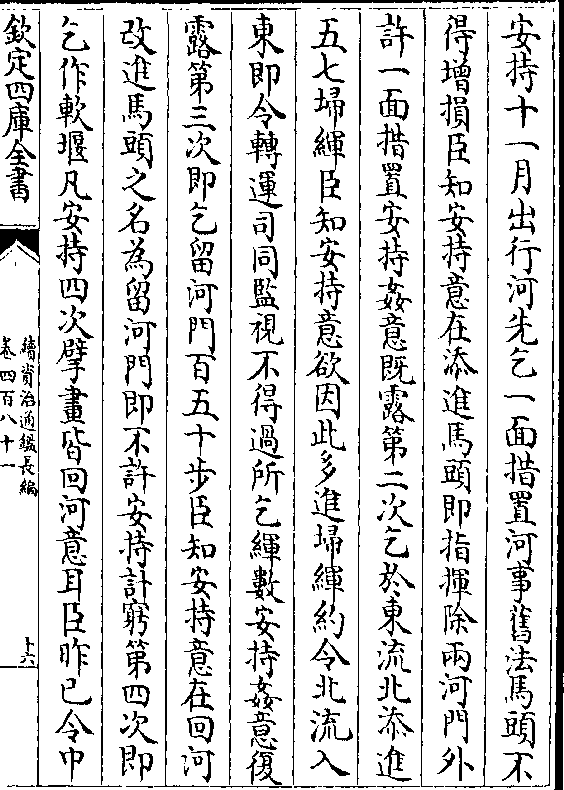 安持十一月出行河先乞一面措置河事舊法馬頭不
得增損臣知安持意在添進馬頭即指揮除兩河門外
許一面措置安持姦意既露第二次乞於東流北添進
五七埽緷臣知安持意欲因此多進埽緷約令北流入
東即令轉運司同監視不得過所乞緷數安持姦意復
露第三次即乞留河門百五十步臣知安持意在回河
改進馬頭之名為留河門即不許安持計窮第四次即
乞作軟堰凡安持四次擘畫皆回河意耳臣昨已令中
欽定四庫全書
續資治通鑑長編
卷四百八十一
十六